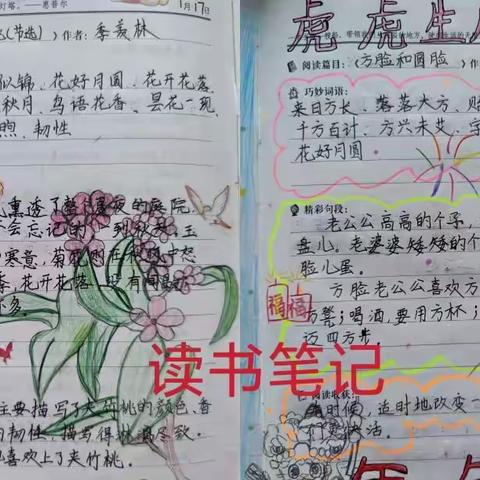 灯塔。——惠普尔
1月17日
(节选) 作者：季羡林
似锦、花好月圆、花开花落
秋月、鸟语花香、昙花一现
煦、韧性
熏透了整个夏夜的庭院
会忘记的一到秋天，玉
寒意，菊花则在秋风中怒
季，花开花落，没有间
多。
主要描写了夹竹桃的颜色、香
韧性，描写得淋漓尽致。
喜欢上了夹竹桃。
虎虎生
阅读篇目：(方脸和圆脸)
巧妙词语：
来日方长、落落大方、
千方百计、方兴未艾、
花好月圆
精彩句段：
老公公高高的个子，
盘儿，老婆婆矮矮的个
脸儿蛋。
方脸老公公喜欢方
方凳；喝酒，要用方杯；
迈四方步。
福福
读书笔记
阅读收获：
时候，适时地改变一
活。